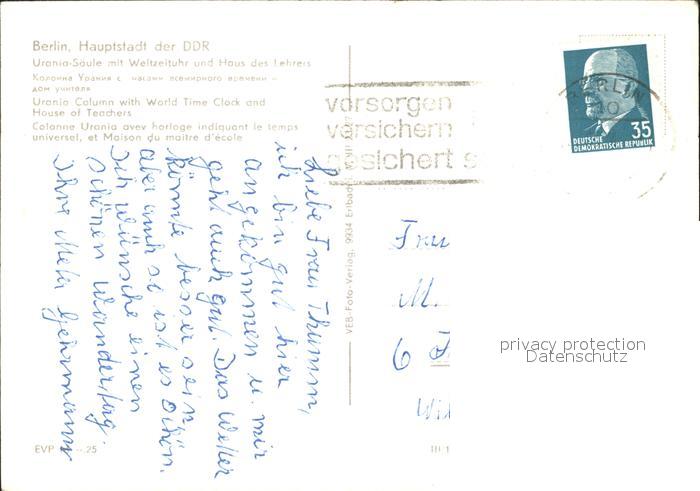 Berlin, Hauptstadt der DDR
Urania-Säule mit Weltzeituhr und Haus des Lehrers
Колонна Урания с часами всемирного времени –
дом учителя
Urania Column with World Time Clock and
House of Teachers
Colonne Urania avev horloge indiquant le temps
universel, et Maison du maître d'école
vorsorgen
versichern
gesichert s
BERLIN
10
35
DEUTSCHE
DEMOKRATISCHE REPUBLIK
Liebe Frau Thumm,
ich bin gut hier
angekommen u. mir
geht auch gut. Das Wetter
könnte besser sein
aber auch so ist es schön.
Ich wünsche einen
schönen Wandertag.
Ihre Meta
VEB-Foto-Verlag, 9934 Erlbach
Frau
M.
6
privacy protection
Datenschutz
EVP
25
III 1